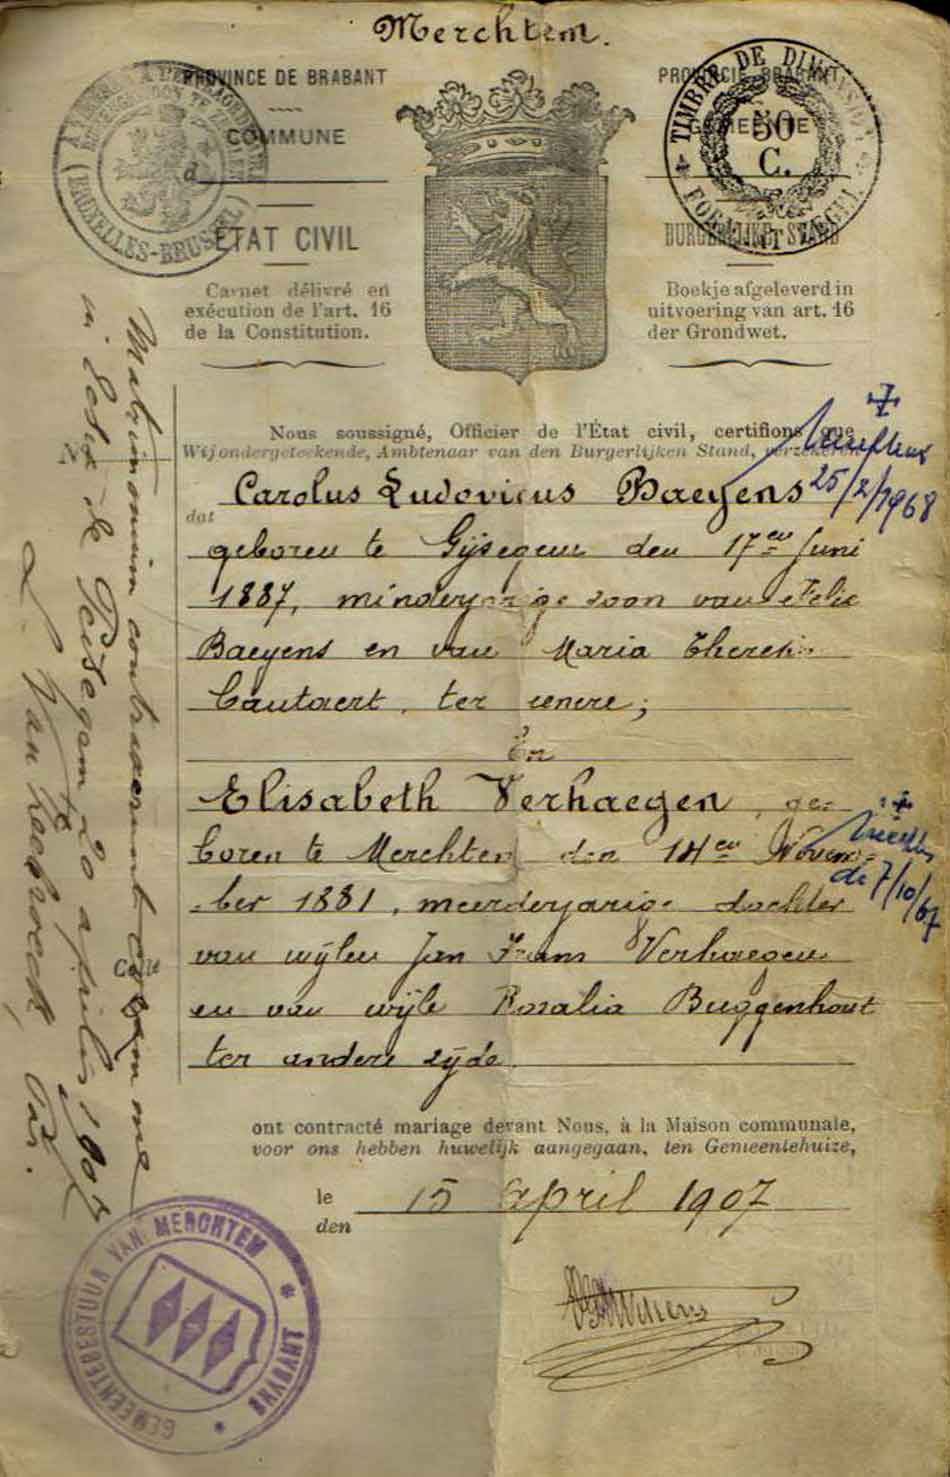 Merchtem.
PROVINCE DE BRABANT
COMMUNE
d
ÉTAT CIVIL
Carnet délivré en
exécution de l'art. 16
de la Constitution.
PROVINCIE BRABANT
GEMEENTE
BURGERLIJKE STAND
Boekje afgeleverd in
uitvoering van art. 16
der Grondwet.
(BRUXELLES-BRUSSEL)
TIMBRE DE DIMENSION
50
C.
Nous soussigné, Officier de l'État civil, certifions que
Wij ondergeteekende, Ambtenaar van den Burgerlijken Stand, verzekeren
dat
Carolus Ludovicus Baeyens
25/2/1968
geboren te Gijsegem den 17en Juni
1887, minderjarige zoon van Felix
Baeyens en van Maria Theresia
Cautaert, ter eenere;
En
Elisabeth Verhaegen, ge-
boren te Merchtem den 14en Novem-
de 7/10/67
ber 1881, meerderjarige dochter
van wijlen Jan Frans Verhaegen
en van wijle Rosalia Buggenhout
ter andere zijde.
ont contracté mariage devant Nous, à la Maison communale,
voor ons hebben huwelijk aangegaan, ten Gemeentehuize,
le
den
15 April 1907
Matrimonium contraxerunt coram me
in Eccl. de Peisegem 20 aprilis 1907
GEMEENTEBESTUUR VAN MERCHTEM
BRABANT